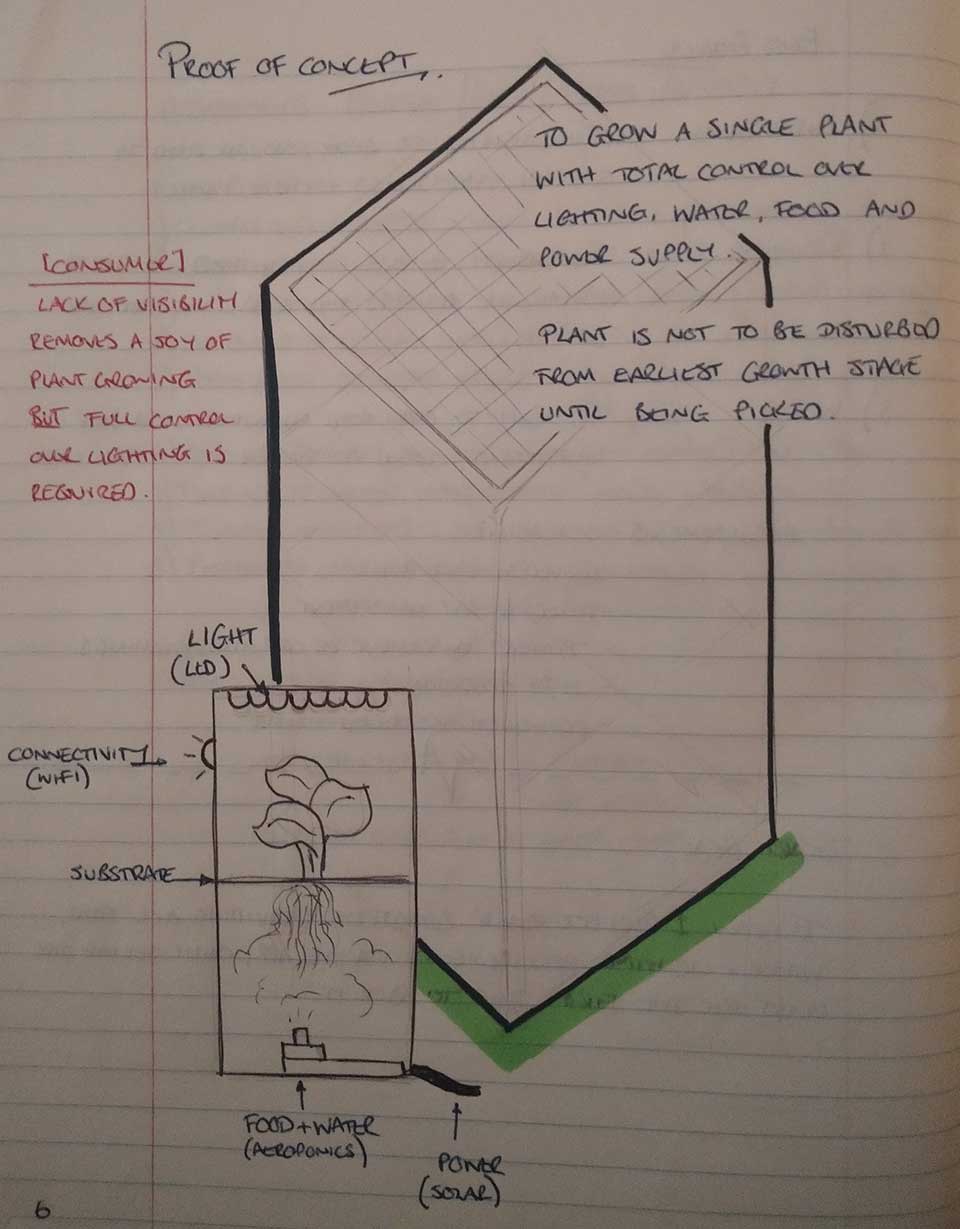 PROOF OF CONCEPT.
TO GROW A SINGLE PLANT
WITH TOTAL CONTROL OVER
LIGHTING, WATER, FOOD AND
POWER SUPPLY.
PLANT IS NOT TO BE DISTURBED
FROM EARLIEST GROWTH STAGE
UNTIL BEING PICKED.
[CONSUMER]
LACK OF VISIBILITY
REMOVES A JOY OF
PLANT GROWING
BUT FULL CONTROL
OVER LIGHTING IS
REQUIRED.
LIGHT
(LED)
CONNECTIVITY
(WIFI)
SUBSTRATE
FOOD + WATER
(AEROPONICS)
POWER
(SOLAR)
6